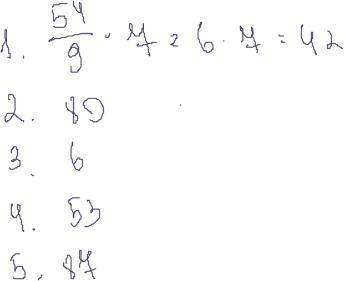 1. 54/9 · 7 = 6 · 7 = 42
2. 89
3. 6
4. 53
5. 87